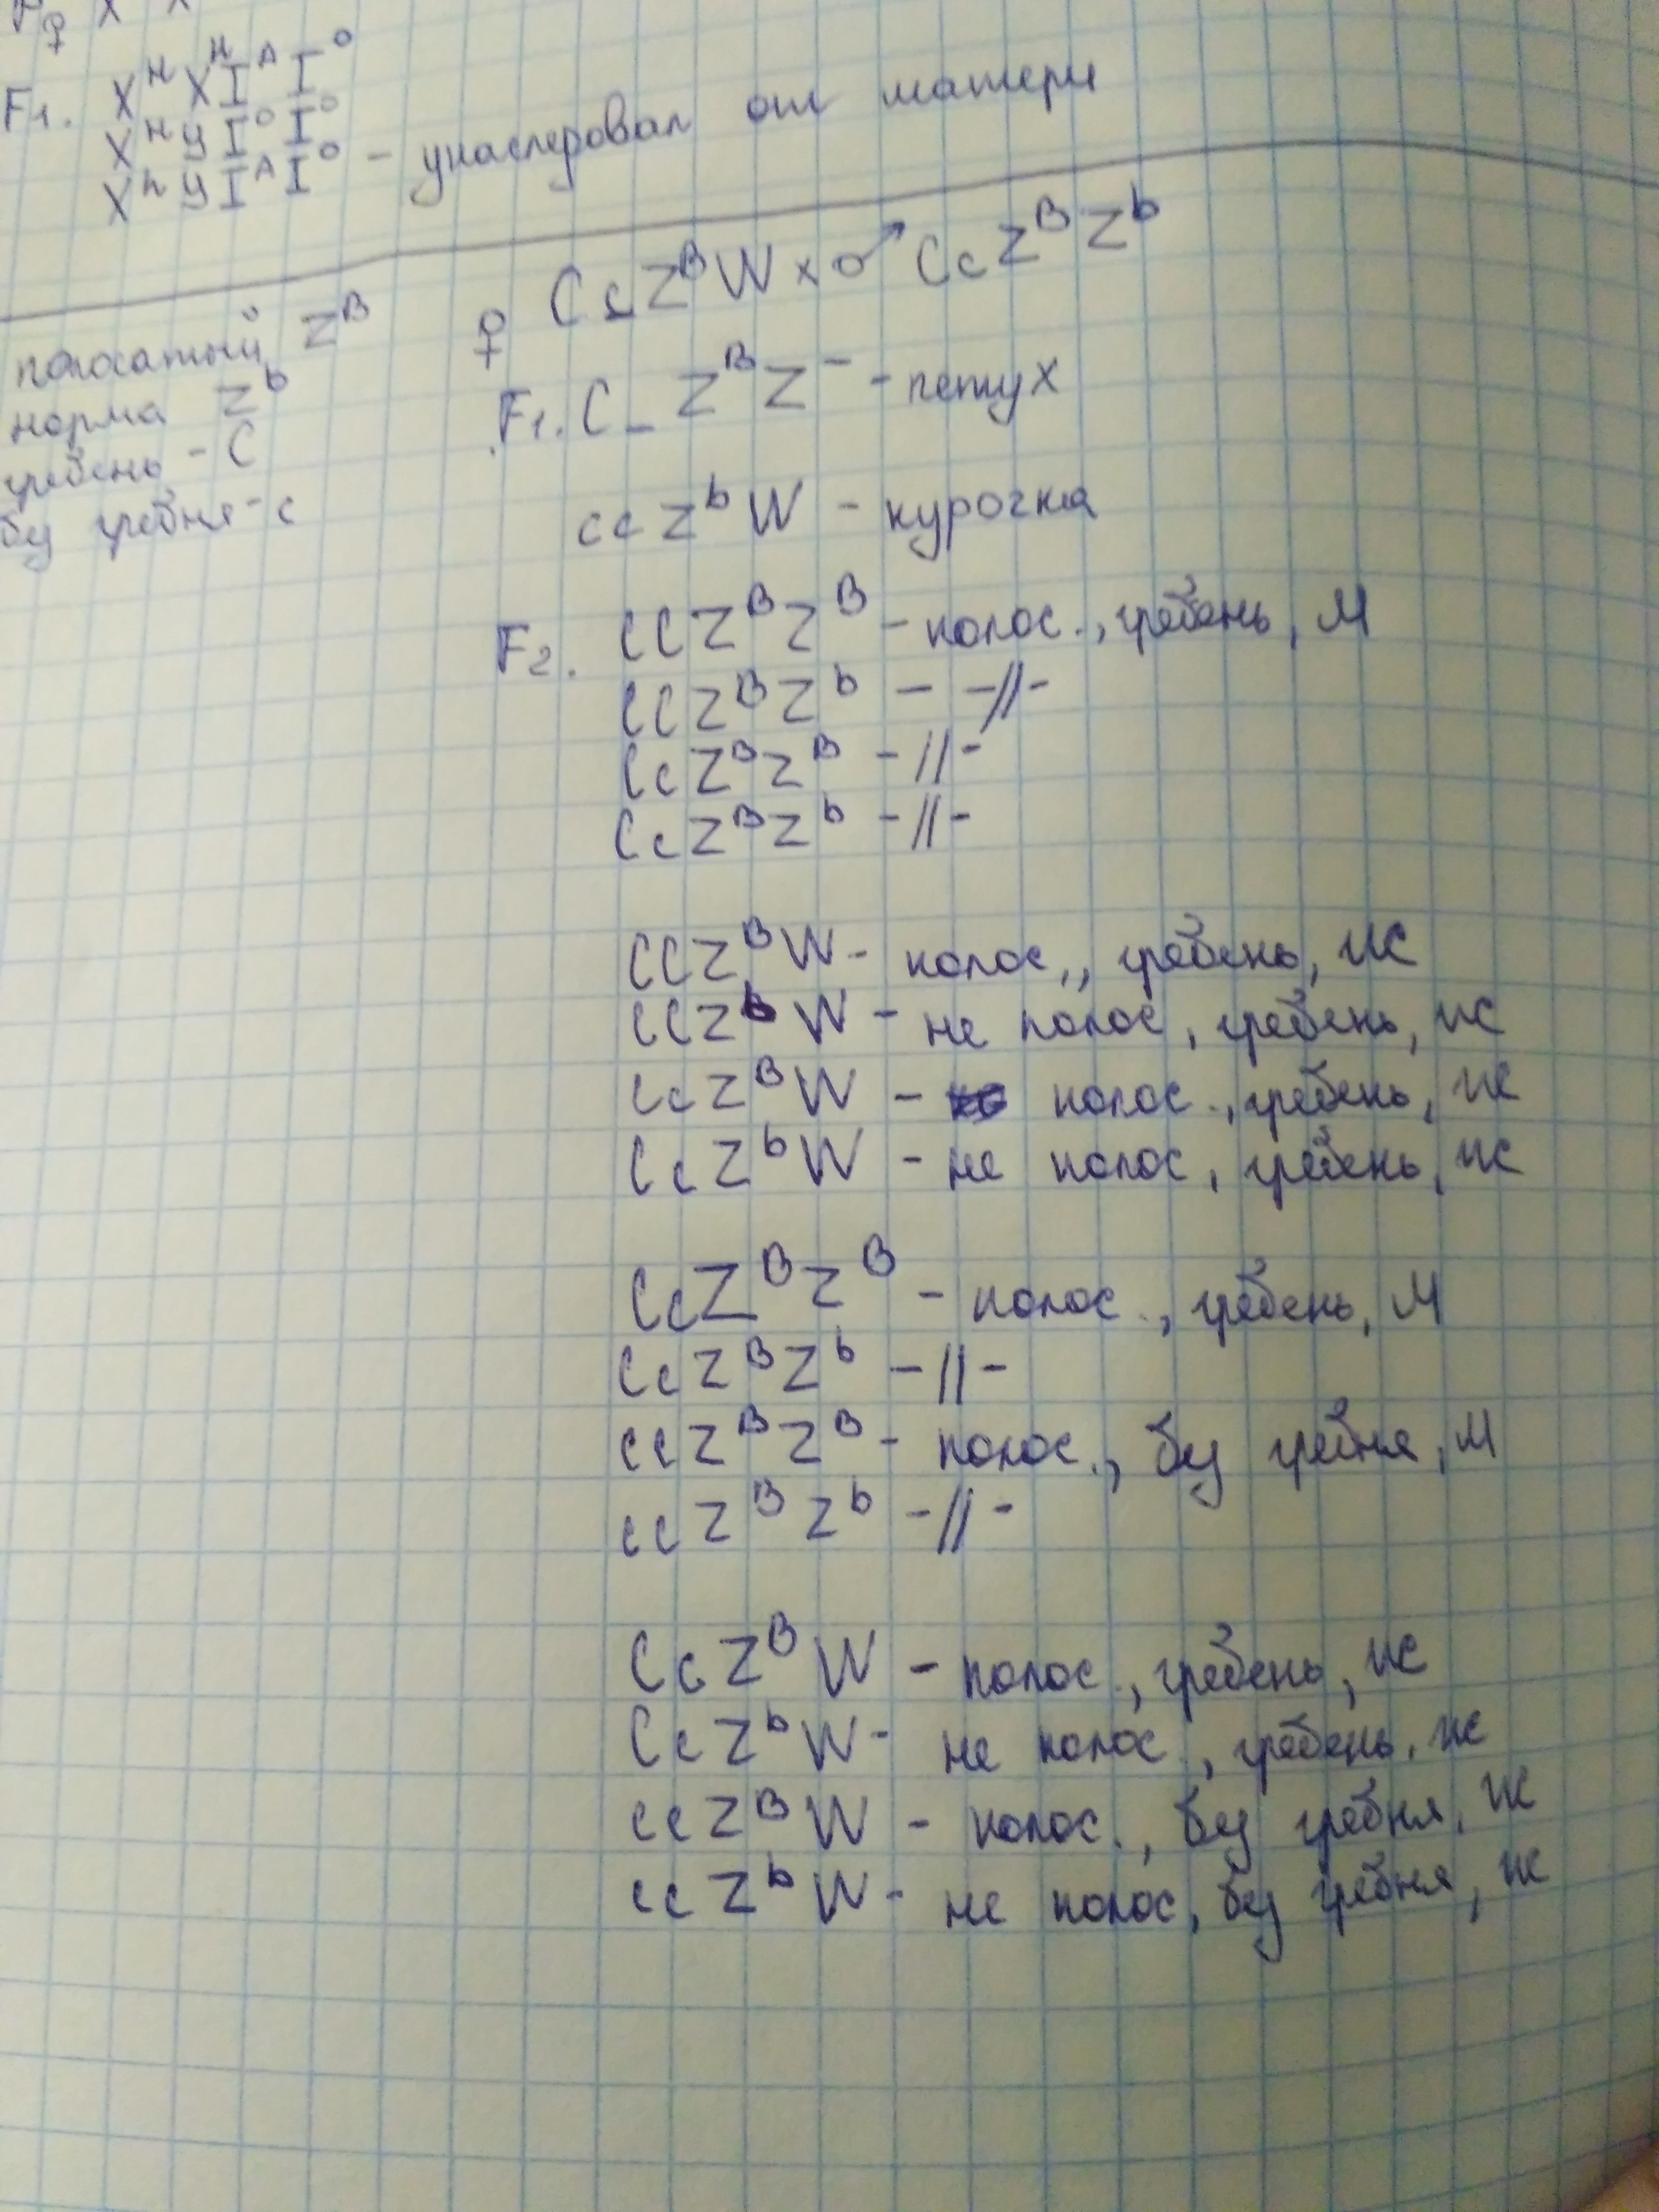 F1. XᴴXᴴIᴬI⁰
XᴴYI⁰I⁰
XʰYIᴬI⁰ - унаследовал от матери
♀ CcZᴮW x ♂ CcZᴮZᵇ
полосатый Zᴮ
норма Zᵇ
гребень - C
без гребня - c
F1. C_ZᴮZ⁻ - петух
ccZᵇW - курочка
F2. CCZᴮZᴮ - полос., гребень, М
CCZᴮZᵇ - -//-
CcZᴮZᴮ -//-
CcZᴮZᵇ -//-
CCZᴮW - полос., гребень, Ж
CCZᵇW - не полос, гребень, Ж
CcZᴮW - полос., гребень, Ж
CcZᵇW - не полос, гребень, Ж
CcZᴮZᴮ - полос., гребень, М
CcZᴮZᵇ -//-
ccZᴮZᴮ - полос., без гребня, М
ccZᴮZᵇ -//-
CcZᴮW - полос., гребень, Ж
CcZᵇW - не полос., гребень, Ж
ccZᴮW - полос., без гребня, Ж
ccZᵇW - не полос, без гребня, Ж